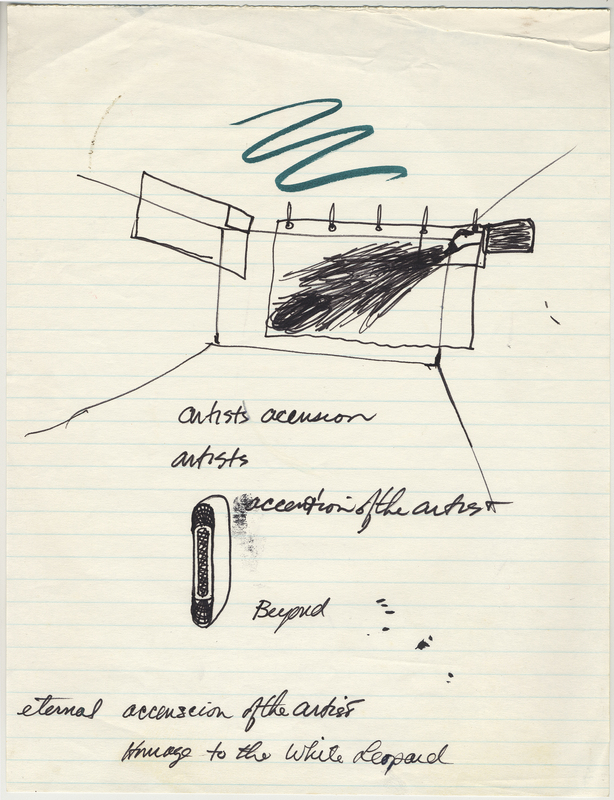 artists accension
artists
accention of the artist
Beyond
eternal accenscion of the artist
Homage to the White Leopard